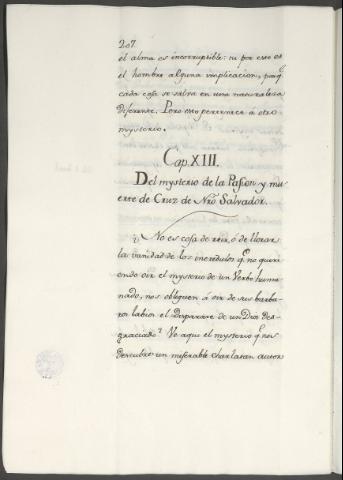 207.
el alma es incorruptible: ni por esso es
el hombre alguna implicacion, porq̃
cada cosa se salva en una naturaleza
diferente. Pero esto pertenece á otro
mysterio.
Cap. XIII.
Del mysterio de la Passion y mu-
erte de Cruz de Nr̃o Salvador.
¿No es cosa de reir, ó de llorar
la vanidad de los incredulos q̃ no queri-
endo oir el mysterio de un Verbo huma-
nado, nos obliguen á oir de sus barba-
ros labios el desparate de un Dios des-
graciado? Ve aqui el mysterio q̃ nos
descubre un miserable charlatan autor